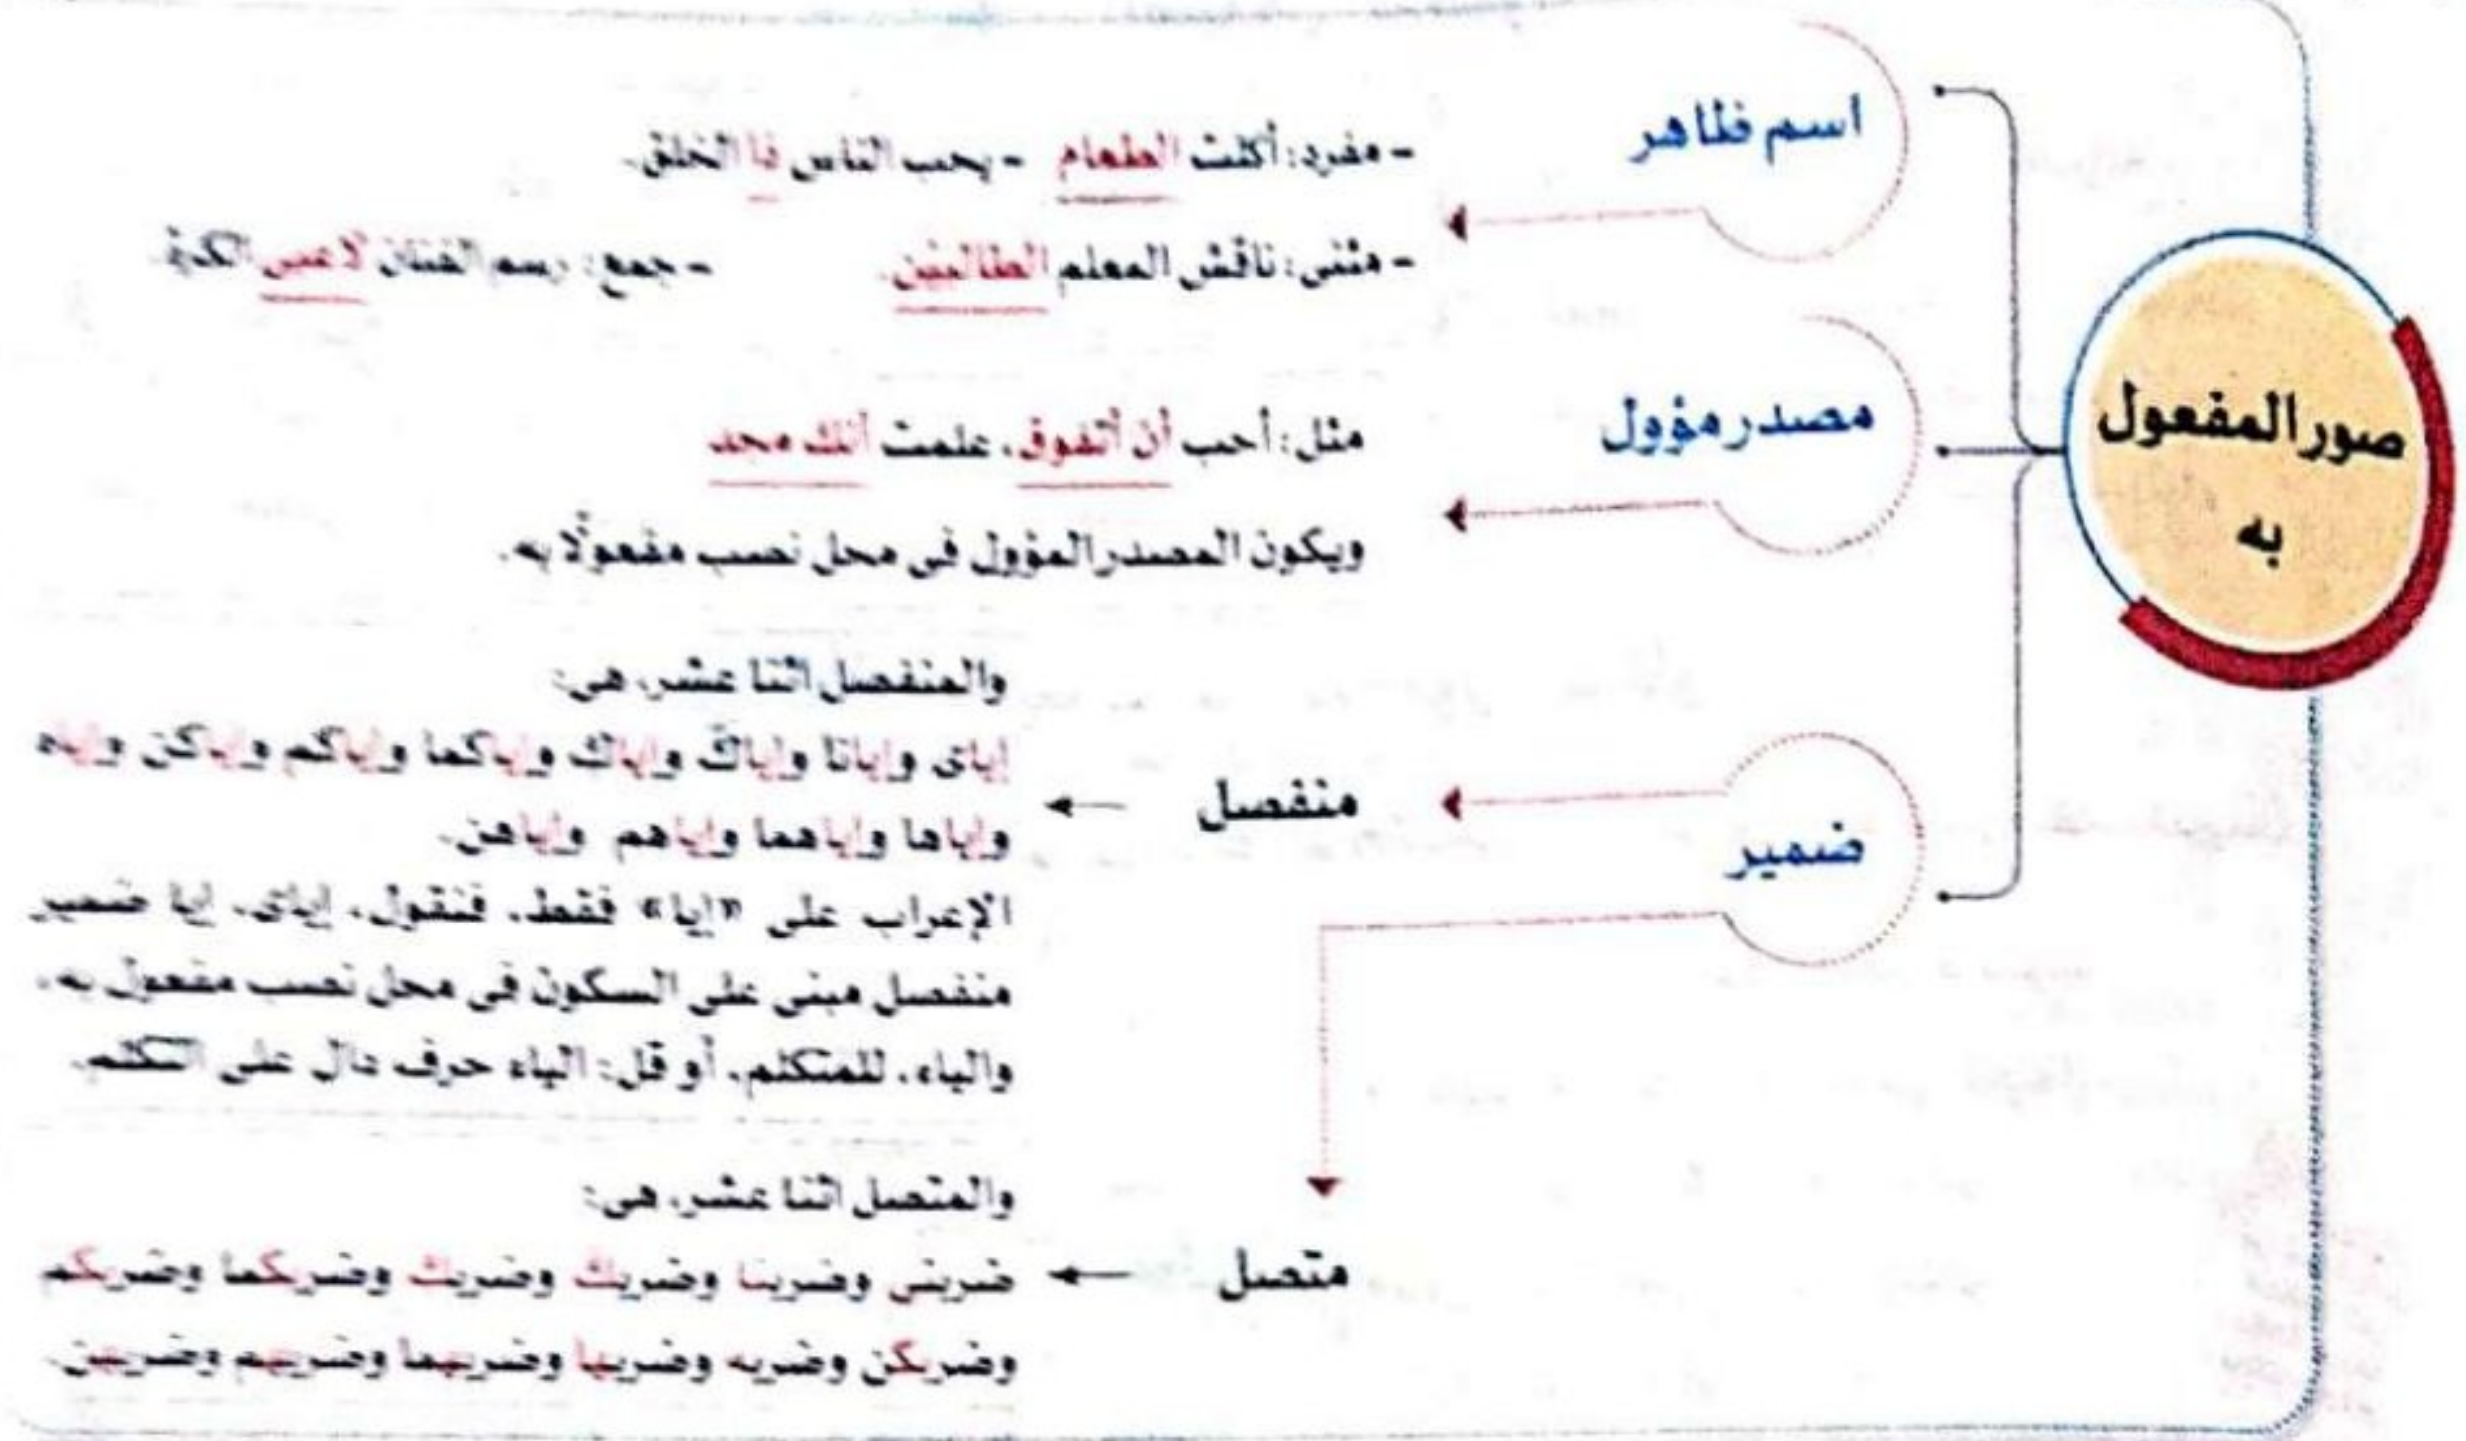 صور المفعول
به
اسم ظاهر
- مفرد: أكلت الطعام - يحب الناس ذا الخلق.
- مثنى: ناقش المعلم الطالبين. - جمع: رسم الفنان لاعبى الكرة.
مصدر مؤول
مثل: أحب أن أتفوق، علمت أنك مجد
ويكون المصدر المؤول فى محل نصب مفعولًا به.
ضمير
منفصل
والمنفصل اثنا عشر، هى:
إياى وإيانا وإياكَ وإياك وإياكما وإياكم وإياكن وإياه
وإياها وإياهما وإياهم وإياهن.
الإعراب على «إيا» فقط، فنقول، إياى، إيا ضمير
منفصل مبنى على السكون فى محل نصب مفعول به،
والياء، للمتكلم، أو قل: الياء حرف دال على التكلم.
متصل
والمتصل اثنا عشر، هى:
ضربنى وضربنا وضربك وضربك وضربكما وضربكم
وضربكن وضربه وضربها وضربهما وضربهم وضربهن.